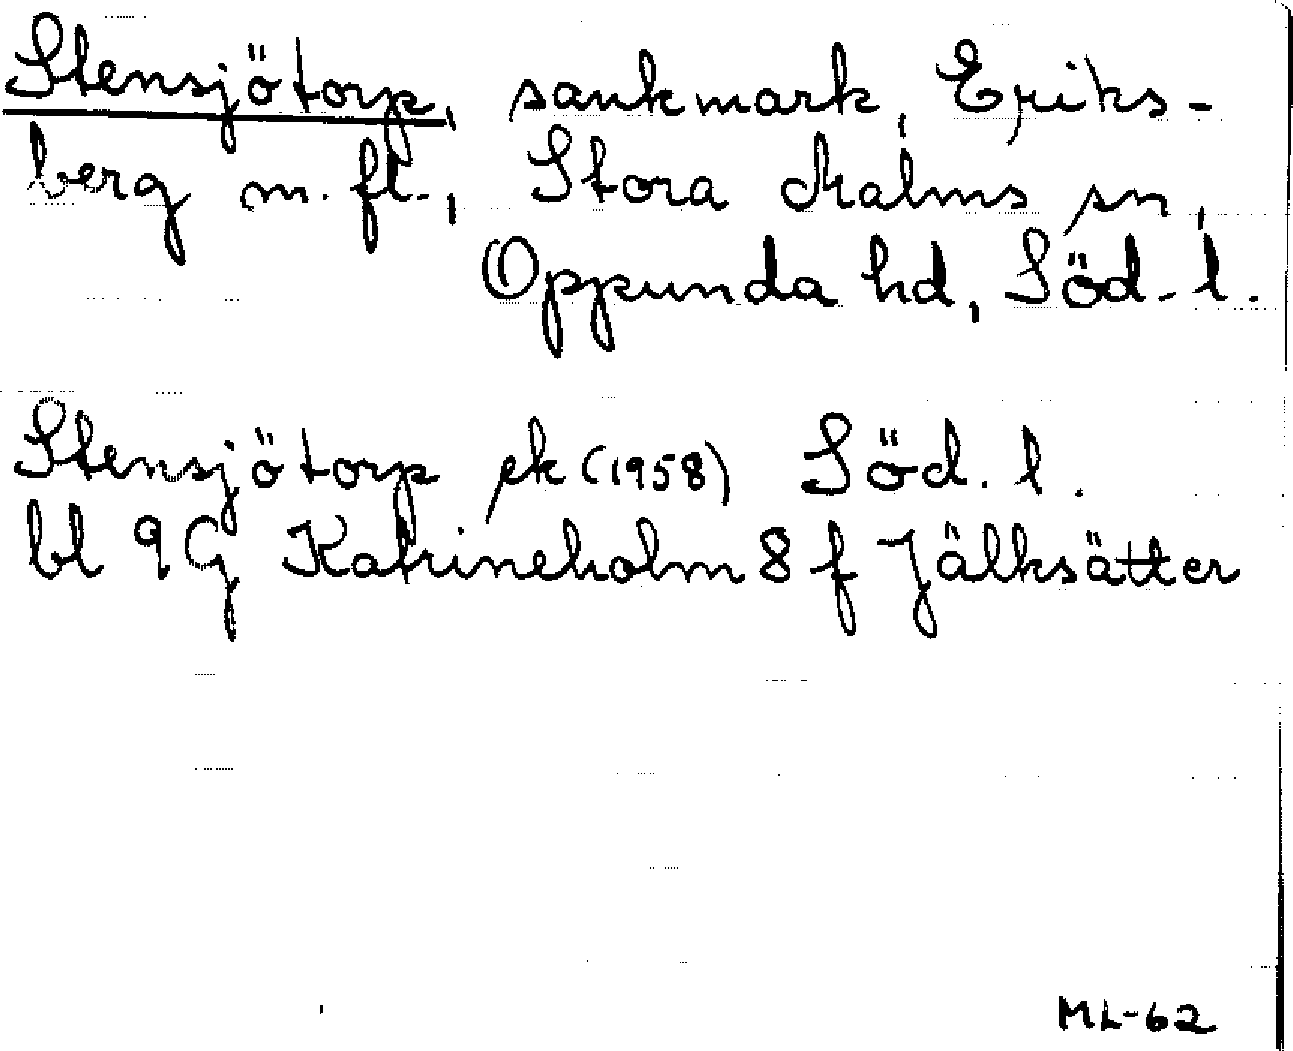 Stensjötorp, sankmark, Eriks-
berg m. fl., Stora Malms sn,
Oppunda hd, Söd. l.
Stensjötorp ek (1958) Söd. l.
bl 9G Katrineholm 8 f Jälksätter
ML-62